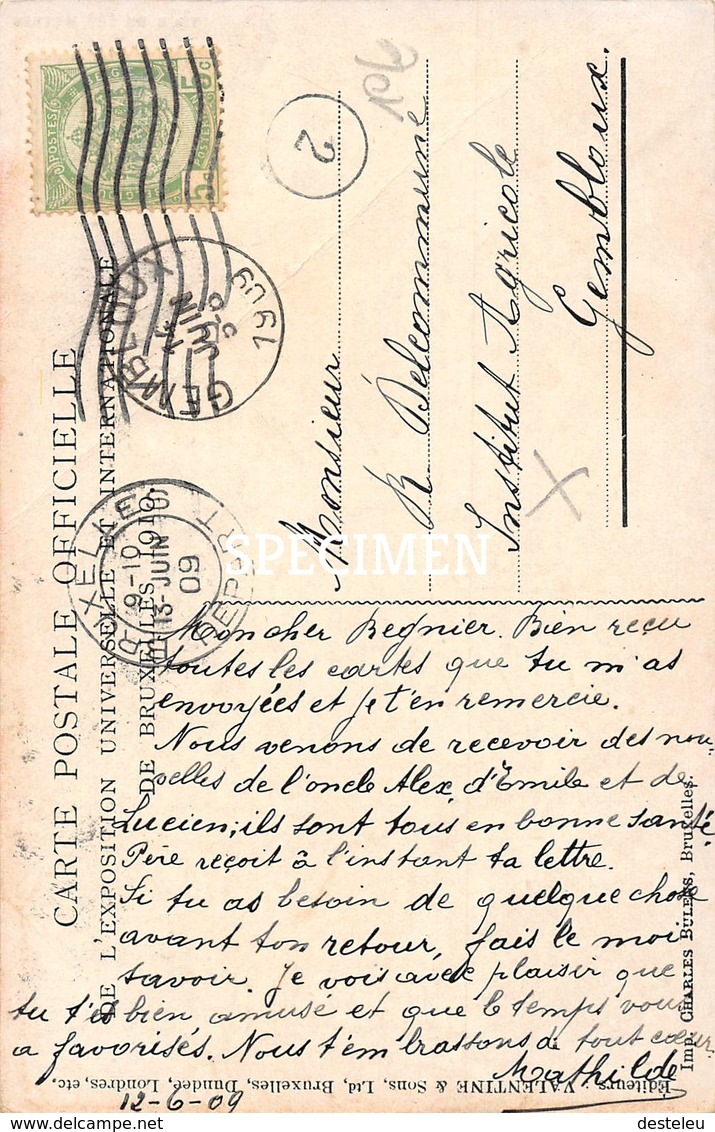 CARTE POSTALE OFFICIELLE
DE L'EXPOSITION UNIVERSELLE ET INTERNATIONALE
DE BRUXELLES 1910.
POSTES
5c
5c
POSTES
GEMBLOUX
14
JUIN
1909
2
BRUXELLES
9-10
13-JUIN
09
DEPART
Monsieur
R. Delcommune
Institut Agricole
Gembloux.
X
SPECIMEN
Mon cher Regnier. Bien reçu
toutes les cartes que tu m'as
envoyées et je t'en remercie.
Nous venons de recevoir des nou-
velles de l'oncle Alex, d'Emile et de
Lucien; ils sont tous en bonne santé.
Père reçoit à l'instant ta lettre.
Si tu as besoin de quelque chose
avant ton retour, fais le moi
savoir. Je vois avec plaisir que
tu t'es bien amusé et que le temps vous
a favorisés. Nous t'embrassons de tout cœur.
Mathilde
12-6-09
Editeurs: VALENTINE & Sons, Ltd, Bruxelles, Dundee, Londres, etc.
Imp. CHARLES BULENS, Bruxelles.
delcampe.net
desteleu